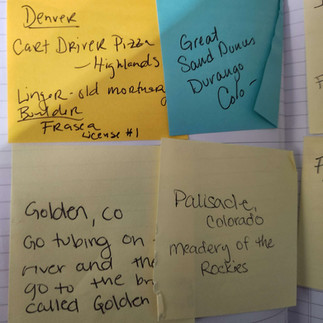 Denver
Cart Driver Pizza
— Highlands
Linger - old mortuary
Frasca
License #1
Great
Sand Dunes
Durango
Colo -
Golden, CO
Go tubing on
river and the
go to the br
called Golden
Palisade,
Colorado
Meadery of the
Rockies